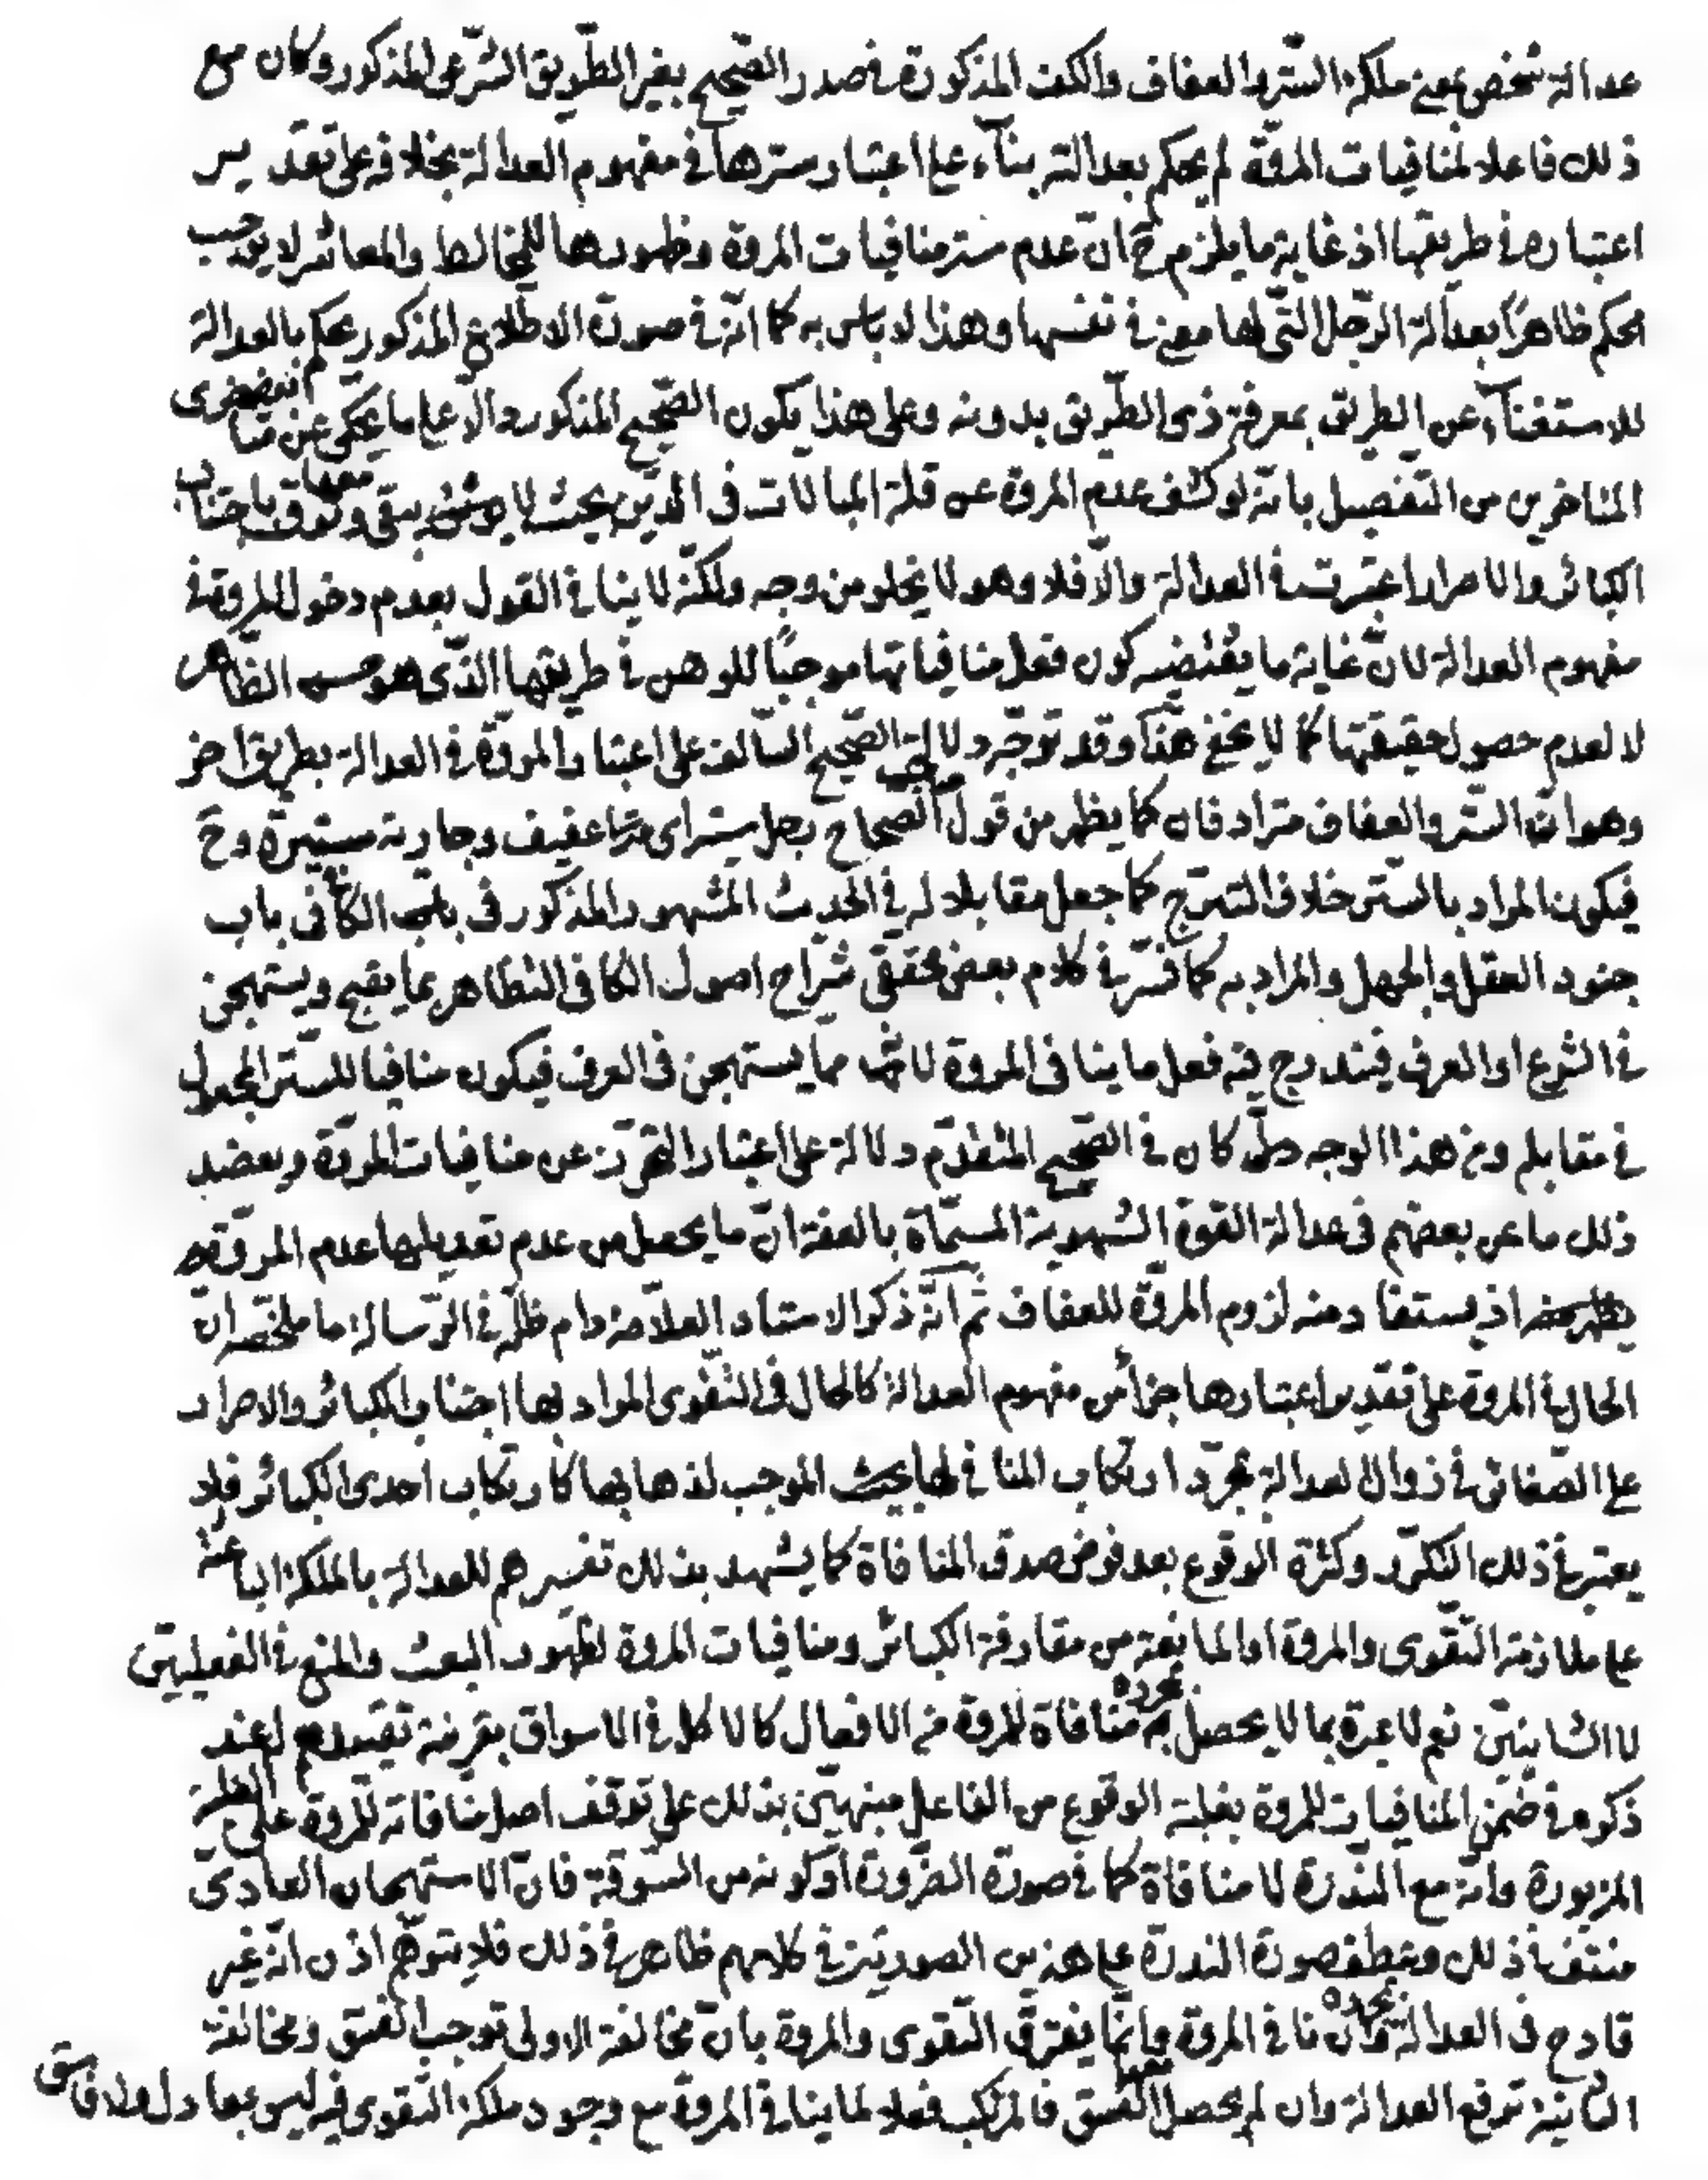 عدالة شخص بمعنى ملكة الستر والعفاف والكف المذكورة في صدر الصحيح بغير الطريق الشرعي المذكور وكان مع
ذلك فاعلا لمنافيات المروة لم يحكم بعدالته بناء على اعتبار سترها في مفهوم العدالة بخلافه على تقدير
اعتباره في طريقها اذ غاية ما يلزم ح ان عدم ستر منافيات المروة وظهورها للمخالط والمعاشر لا يوجب
الحكم ظاهرا بعدالة الرجل التي لها معنى في نفسها وهذا لا باس به كما انه في صورة الاطلاع المذكور يحكم بالعدالة
للاستغناء عن الطريق بمعرفة ذي الطريق بدونه وعلى هذا يكون الصحيح المذكور دالا على ما يحكى عن بعض متاخري
المتاخرين من التفصيل بانه لو كشف عدم المروة عن قلة المبالات في الدين بحيث لا يوثق معها بتقوى باجتناب
الكبائر والاصرار اعتبرت في العدالة والا فلا وهو لا يخلو من وجه ولكنه لا ينافي القول بعدم دخول المروة في
مفهوم العدالة لان غاية ما يقتضيه كون فعل منافياتها موجبا للوهن في طريقها الذي هو حسن الظاهر
لا لعدم حصول حقيقتها كما لا يخفى هذا وقد توجه دلالة الصحيح السالف على اعتبار المروة في العدالة بطريق اخر
وهو ان الستر والعفاف مترادفان كما يظهر من قول صاحب الصحاح رجل ستير اى عفيف وجارية ستيرة وح
فيكون المراد بالستر خلاف التبرج كما جعل مقابلا له في الحديث المشهور المذكور في الكافي باب
جنود العقل والجهل والمراد به كما فسر في كلام بعض محققي شراح اصول الكافي التظاهر بما يقبح ويستهجن
في الشرع او العرف فيندرج فيه فعل ما ينافي المروة لانه مما يستهجن في العرف فيكون منافيا للستر المجعول
في مقابله ومن هذا الوجه كان في الصحيح المتقدم دلالة على اعتبار التحرز عن منافيات المروة ويعضد
ذلك ما عن بعضهم في عدالة القوة الشهوية المسماة بالعفة ان ما يحصل من عدم تعديلها عدم المروة
اذ يستفاد منه لزوم المروة للعفاف ثم انه ذكر الاستاد العلامة دام ظله في الرسالة ما ملخصه ان
الحال في المروة على تقدير اعتبارها جزأ من مفهوم العدالة كالحال في التقوى المراد بها اجتناب الكبائر والاصرار
على الصغائر في زوال العدالة بمجرد ارتكاب المنافي لها الموجب لذهابها كارتكاب احدى الكبائر فلا
يعتبر في ذلك التكرر وكثرة الوقوع بعد فرض صدق المنافاة كما يشهد بذلك تفسيرهم للعدالة بالملكة الباعثة
على ملازمة التقوى والمروة او المانعة من مقارفة الكبائر ومنافيات المروة لظهور البعث والمنع في الفعليتين
لا الشانيتين نعم لا عبرة بما لا يحصل بمجرده منافاة للمروة من الافعال كالاكل في الاسواق بقرينة تقييدهم له عند
ذكره في ضمن المنافيات للمروة بغلبة الوقوع من الفاعل منبهين بذلك على توقف اصل منافاته للمروة على الغلبة
المزبورة وانه مع الندرة لا منافاة كما في صورة الضرورة او كونه من السوقة فان الاستهجان العادي
منتف في ذلك وعطف صورة الندرة على هذين الصورتين في كلامهم ظاهر في ذلك فلا يتوهم اذن انه غير
قادح في العدالة بمجرده وان نافى المروة وانما يفترق التقوى والمروة بان مخالفة الاولى توجب الفسق ومخالفة
الثانية ترفع العدالة وان لم يحصل معها الفسق فالمرتكب فعلا لما ينافي المروة مع وجود ملكة التقوى فيه ليس بعادل ولا فاسق